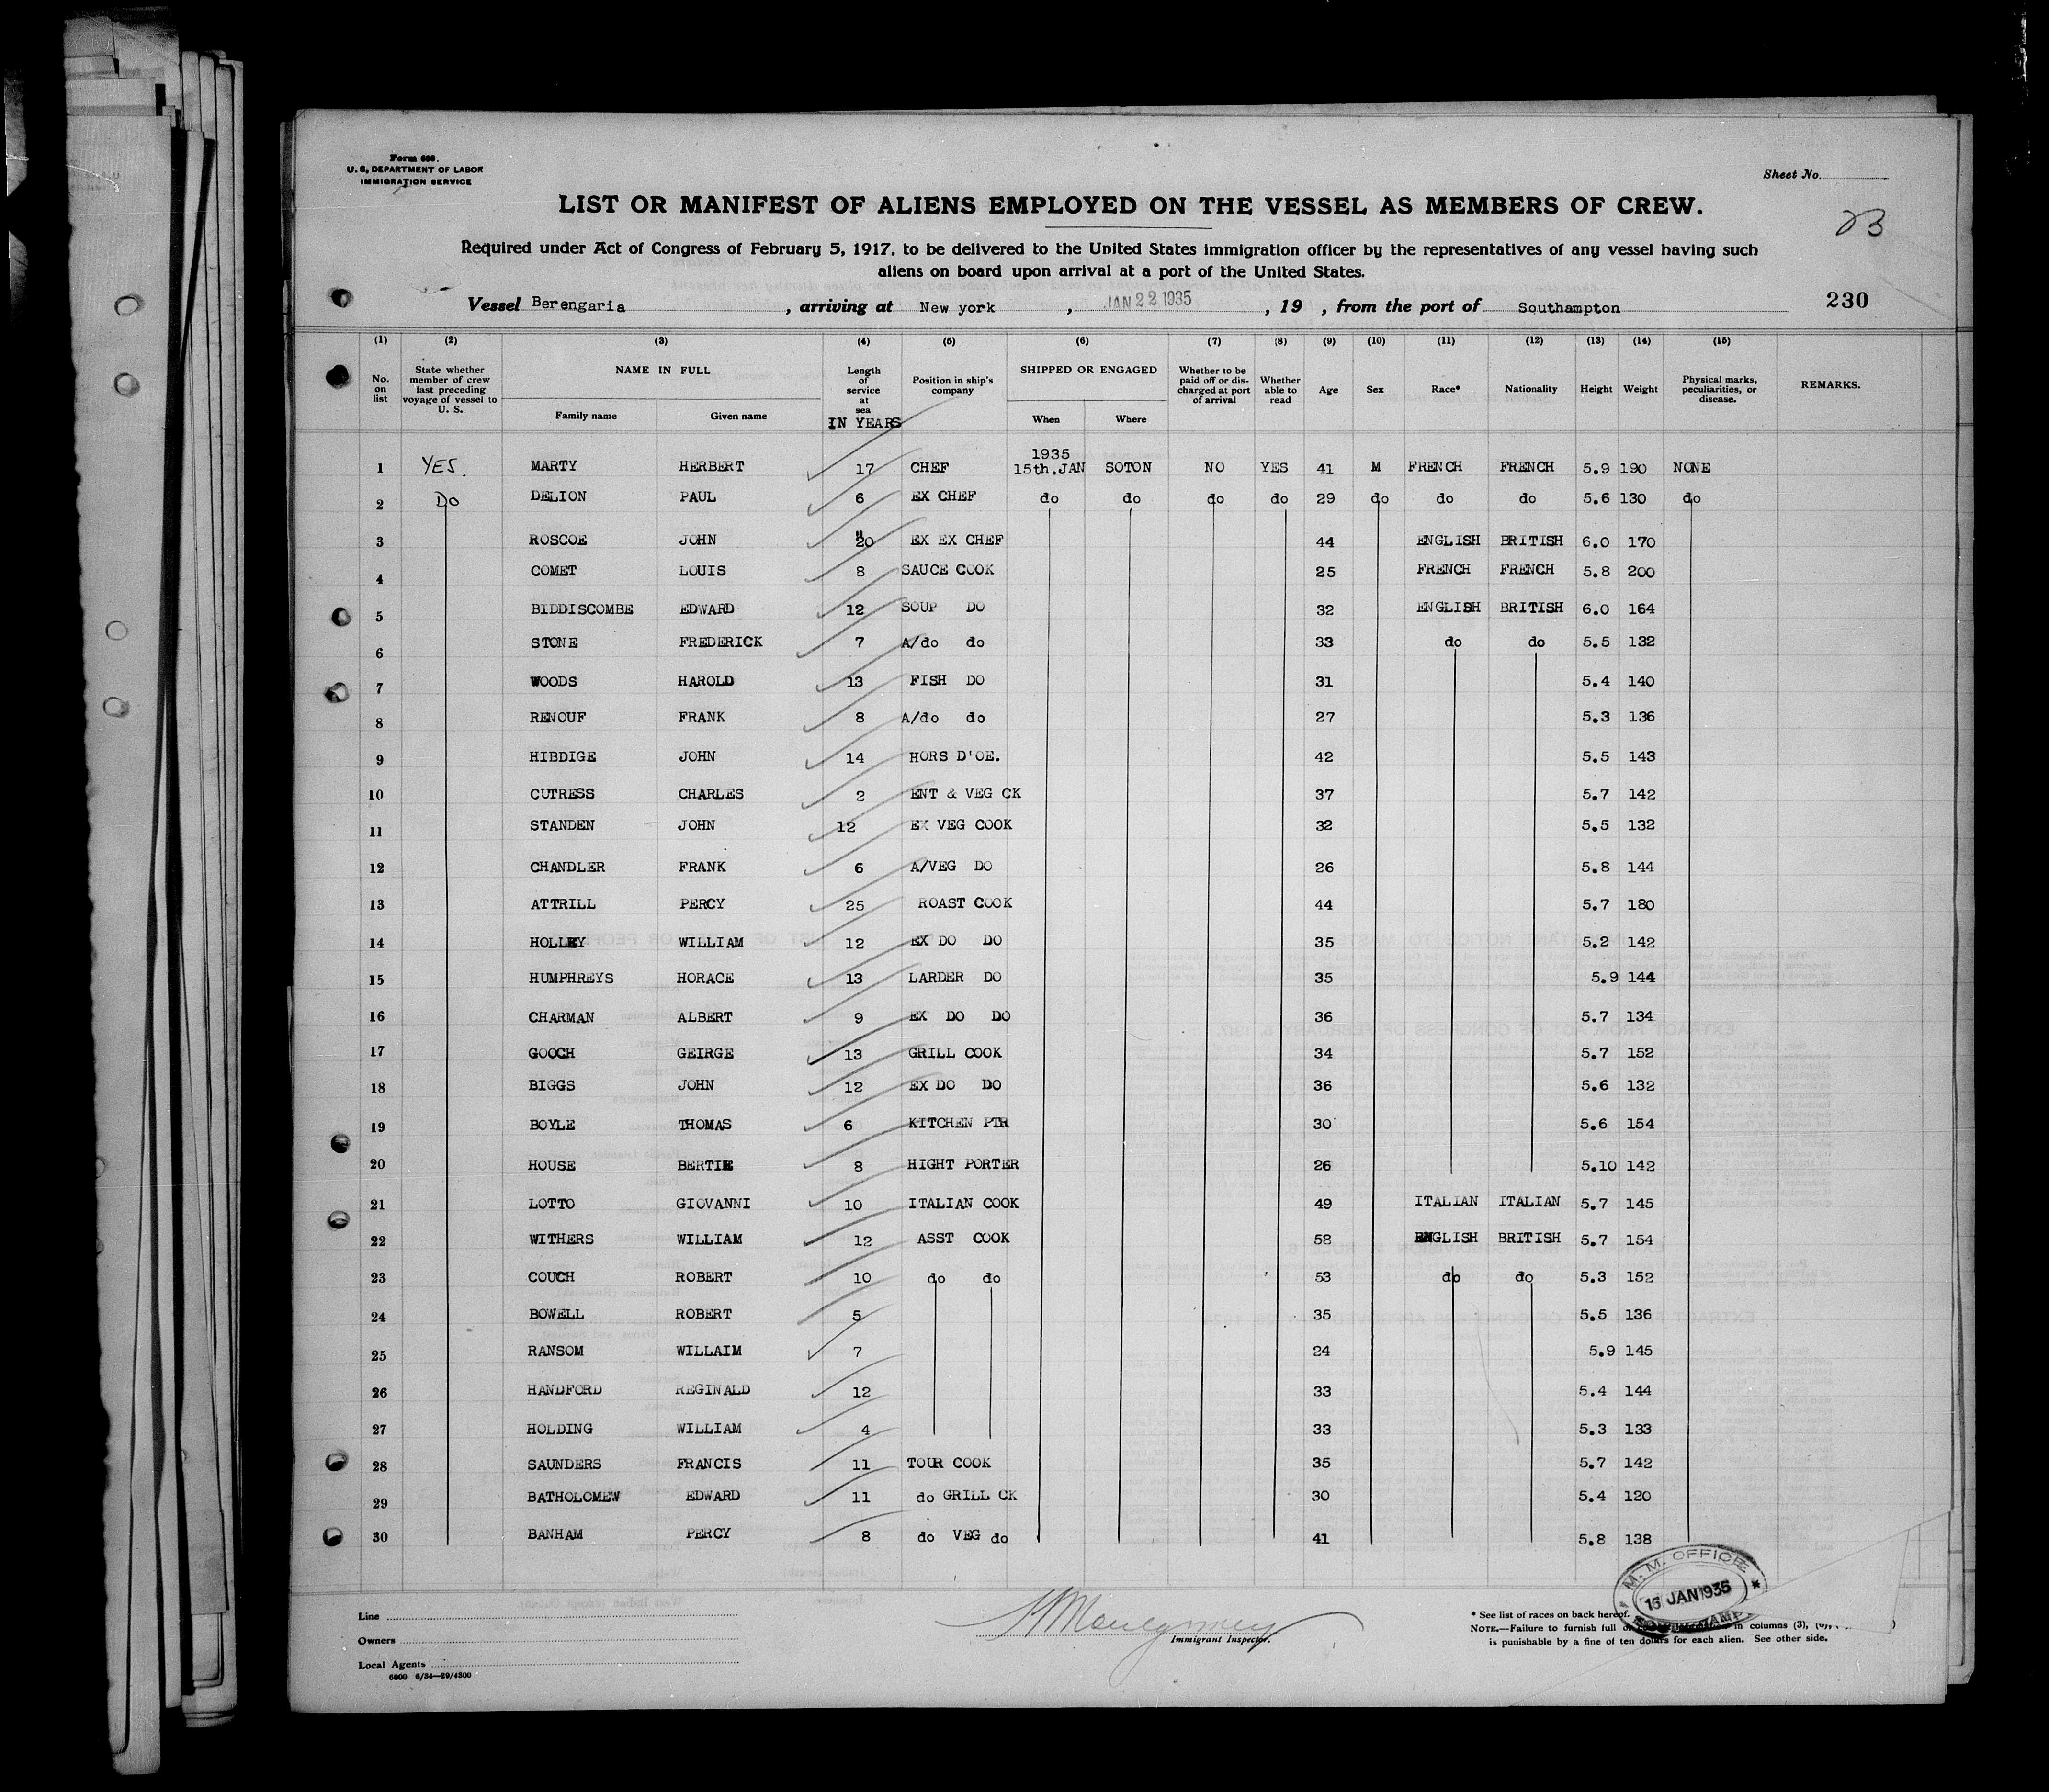 Form 680.
U. S. DEPARTMENT OF LABOR
IMMIGRATION SERVICE
Sheet No.
LIST OR MANIFEST OF ALIENS EMPLOYED ON THE VESSEL AS MEMBERS OF CREW.
23
Required under Act of Congress of February 5, 1917, to be delivered to the United States immigration officer by the representatives of any vessel having such
aliens on board upon arrival at a port of the United States.
Vessel Berengaria, arriving at New york, JAN 22 1935, 19 , from the port of Southampton 230
(1) (2) (3) (4) (5) (6) (7) (8) (9) (10) (11) (12) (13) (14) (15)
No. on list State whether member of crew last preceding voyage of vessel to U. S. NAME IN FULL Family name Given name Length of service at sea IN YEARS Position in ship's company SHIPPED OR ENGAGED When Where Whether to be paid off or discharged at port of arrival Whether able to read Age Sex Race* Nationality Height Weight Physical marks, peculiarities, or disease. REMARKS.
1935
1 YES. MARTY HERBERT 17 CHEF 15th.JAN SOTON NO YES 41 M FRENCH FRENCH 5.9 190 NONE
2 Do DELION PAUL 6 EX CHEF do do do do 29 do do do 5.6 130 do
3 ROSCOE JOHN 20 EX EX CHEF 44 ENGLISH BRITISH 6.0 170
4 COMET LOUIS 8 SAUCE COOK 25 FRENCH FRENCH 5.8 200
5 BIDDISCOMBE EDWARD 12 SOUP DO 32 ENGLISH BRITISH 6.0 164
6 STONE FREDERICK 7 A/do do 33 do do 5.5 132
7 WOODS HAROLD 13 FISH DO 31 5.4 140
8 RENOUF FRANK 8 A/do do 27 5.3 136
9 HIBDIGE JOHN 14 HORS D'OE. 42 5.5 143
10 CUTRESS CHARLES 2 ENT & VEG CK 37 5.7 142
11 STANDEN JOHN 12 EX VEG COOK 32 5.5 132
12 CHANDLER FRANK 6 A/VEG DO 26 5.8 144
13 ATTRILL PERCY 25 ROAST COOK 44 5.7 180
14 HOLLEY WILLIAM 12 EX DO DO 35 5.2 142
15 HUMPHREYS HORACE 13 LARDER DO 35 5.9 144
16 CHARMAN ALBERT 9 EX DO DO 36 5.7 134
17 GOOCH GEIRGE 13 GRILL COOK 34 5.7 152
18 BIGGS JOHN 12 EX DO DO 36 5.6 132
19 BOYLE THOMAS 6 KITCHEN PTR 30 5.6 154
20 HOUSE BERTIE 8 HIGHT PORTER 26 5.10 142
21 LOTTO GIOVANNI 10 ITALIAN COOK 49 ITALIAN ITALIAN 5.7 145
22 WITHERS WILLIAM 12 ASST COOK 58 ENGLISH BRITISH 5.7 154
23 COUCH ROBERT 10 do do 53 do do 5.3 152
24 BOWELL ROBERT 5 35 5.5 136
25 RANSOM WILLAIM 7 24 5.9 145
26 HANDFORD REGINALD 12 33 5.4 144
27 HOLDING WILLIAM 4 33 5.3 133
28 SAUNDERS FRANCIS 11 TOUR COOK 35 5.7 142
29 BATHOLOMEW EDWARD 11 do GRILL CK 30 5.4 120
30 BANHAM PERCY 8 do VEG do 41 5.8 138
M. M. OFFICE
15 JAN 1935
SOUTHAMPTON
Line
Owners
Local Agents
6000 6/34—29/4300
Montgomery
Immigrant Inspector.
* See list of races on back hereof.
NOTE.—Failure to furnish full in columns (3),
is punishable by a fine of ten dollars for each alien. See other side.